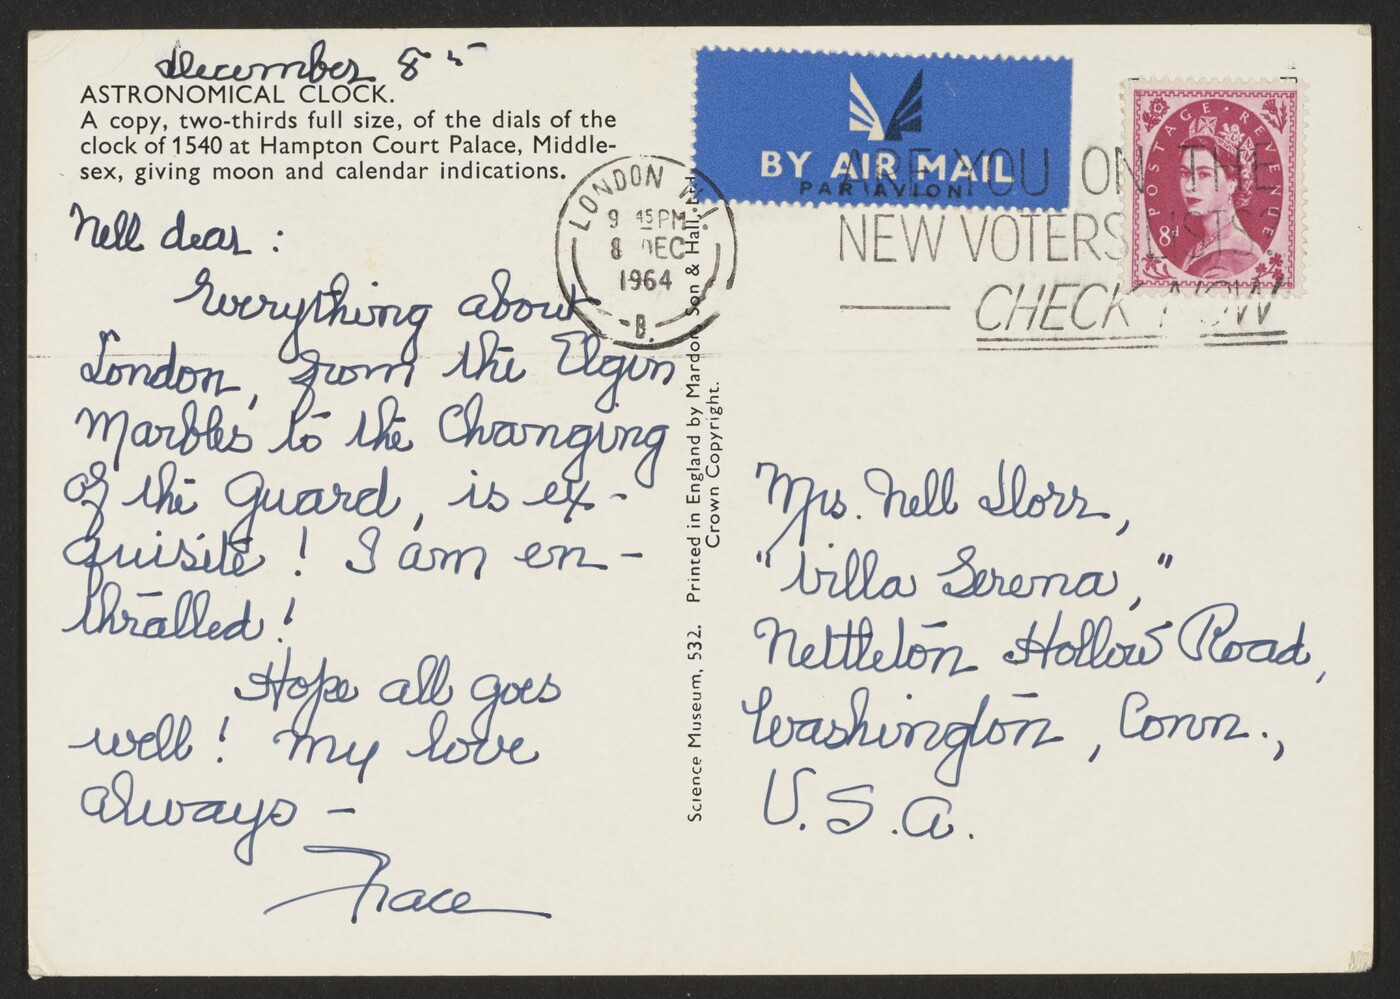 December 8th
ASTRONOMICAL CLOCK.
A copy, two-thirds full size, of the dials of the
clock of 1540 at Hampton Court Palace, Middle-
sex, giving moon and calendar indications.
Nell dear:
Everything about
London, from the Elgin
Marbles to the Changing
of the Guard, is ex-
quisite! I am en-
thralled!
Hope all goes
well! My love
always –
Grace
LONDON W.1.
9 45 PM
8 DEC
1964
B.
Science Museum, 532. Printed in England by Mardon Son & Hall, Ltd.
Crown Copyright.
BY AIR MAIL
PAR AVION
ARE YOU ON THE
NEW VOTERS LISTS?
CHECK NOW
POSTAGE REVENUE
8d
Mrs. Nell Dorr,
"Villa Serena,"
Nettleton Hollow Road,
Washington, Conn.,
U.S.A.